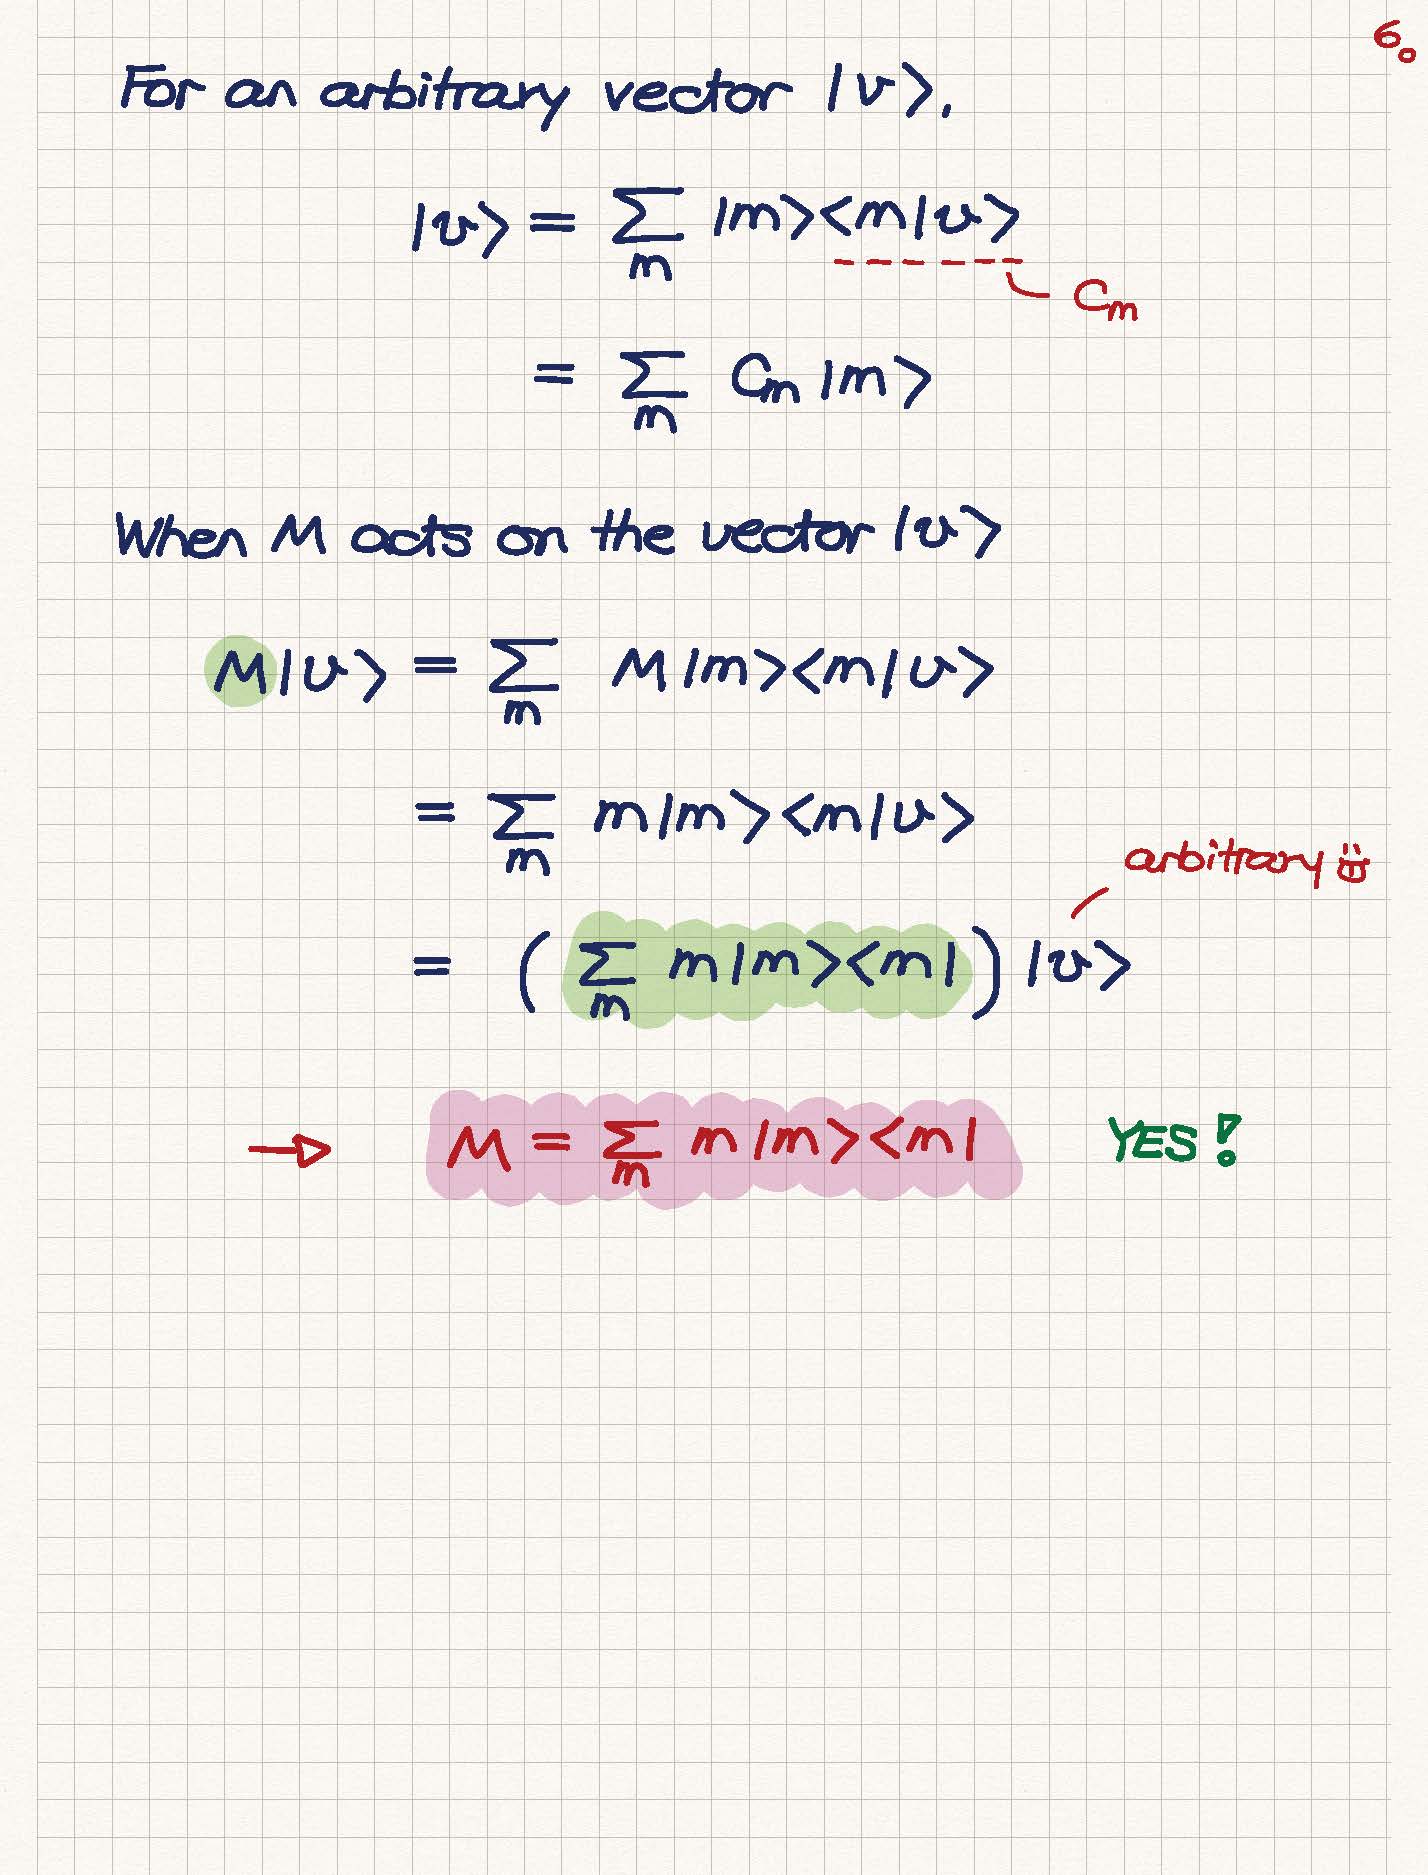 6.
For an arbitrary vector |v>,
|v> = Σ_m |m><m|v>
C_m
= Σ_m C_m |m>
When M acts on the vector |v>
M|v> = Σ_m M|m><m|v>
= Σ_m m|m><m|v>
arbitrary
= ( Σ_m m|m><m| ) |v>
→ M = Σ_m m|m><m| YES!